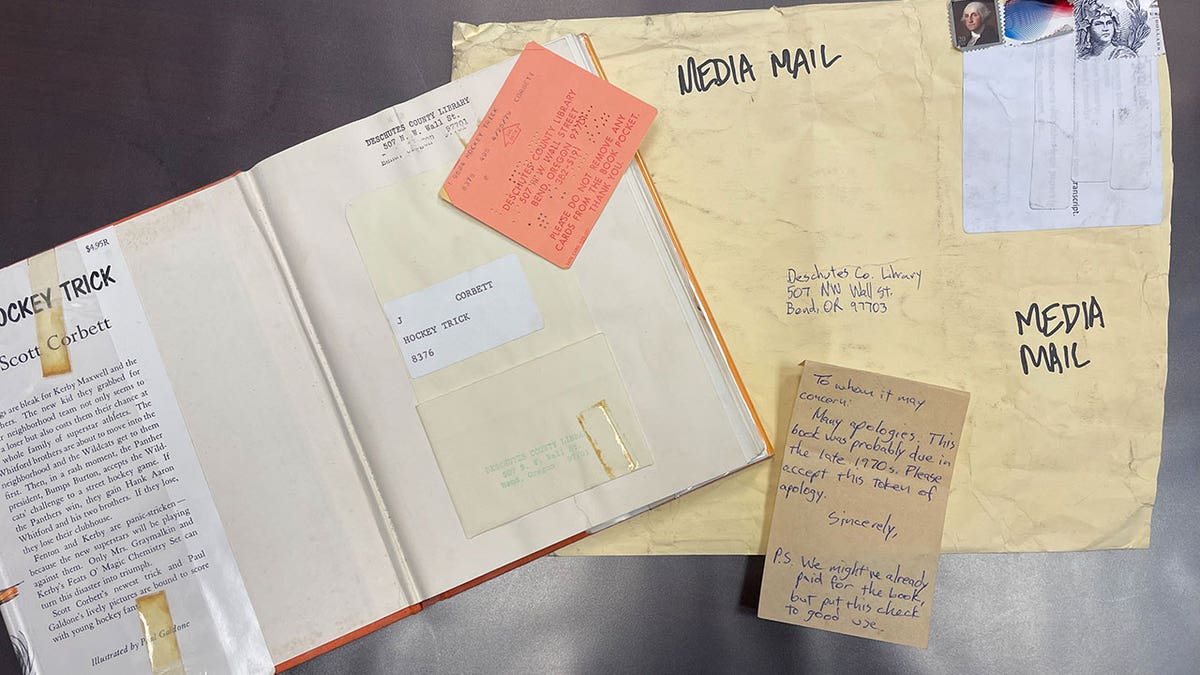 $4.95R
OCKEY TRICK
Scott Corbett
gs are bleak for Kerby Maxwell and the
hers. The new kid they grabbed for
r neighborhood team not only seems to
a loser but also costs them their chance at
whole family of superstar athletes. The
Whitford brothers are about to move into the
neighborhood and the Wildcats get to them
first. Then, in a rash moment, the Panther
president, Bumps Burton, accepts the Wild-
cats' challenge to a street hockey game. If
the Panthers win, they gain Hank Aaron
Whitford and his two brothers. If they lose,
they lose their clubhouse.
Fenton and Kerby are panic-stricken—
because the new superstars will be playing
against them. Only Mrs. Graymalkin and
Kerby's Feats O' Magic Chemistry Set can
turn this disaster into triumph.
Scott Corbett's newest trick and Paul
Galdone's lively pictures are bound to score
with young hockey fans
Illustrated by Paul Galdone
DESCHUTES COUNTY LIBRARY
507 N. W. Wall St.
Bend, Oregon 97701
HOCKEY TRICK CORBETT
8376
DESCHUTES COUNTY LIBRARY
507 N W WALL STREET
BEND, OREGON 97701
382-5191
PLEASE DO NOT REMOVE ANY
CARDS FROM THE BOOK POCKET.
THANK YOU
CORBETT
J
HOCKEY TRICK
8376
DESCHUTES COUNTY LIBRA
507 N. W. Wall St.
Bend, Oregon 97701
MEDIA MAIL
20
transcript.
Deschutes Co. Library
507 NW Wall St.
Bend, OR 97703
MEDIA
MAIL
To whom it may
concern:
Many apologies. This
book was probably due in
the late 1970s. Please
accept this token of
apology.
Sincerely,
P.S. We might've already
paid for the book,
but put this check
to good use.